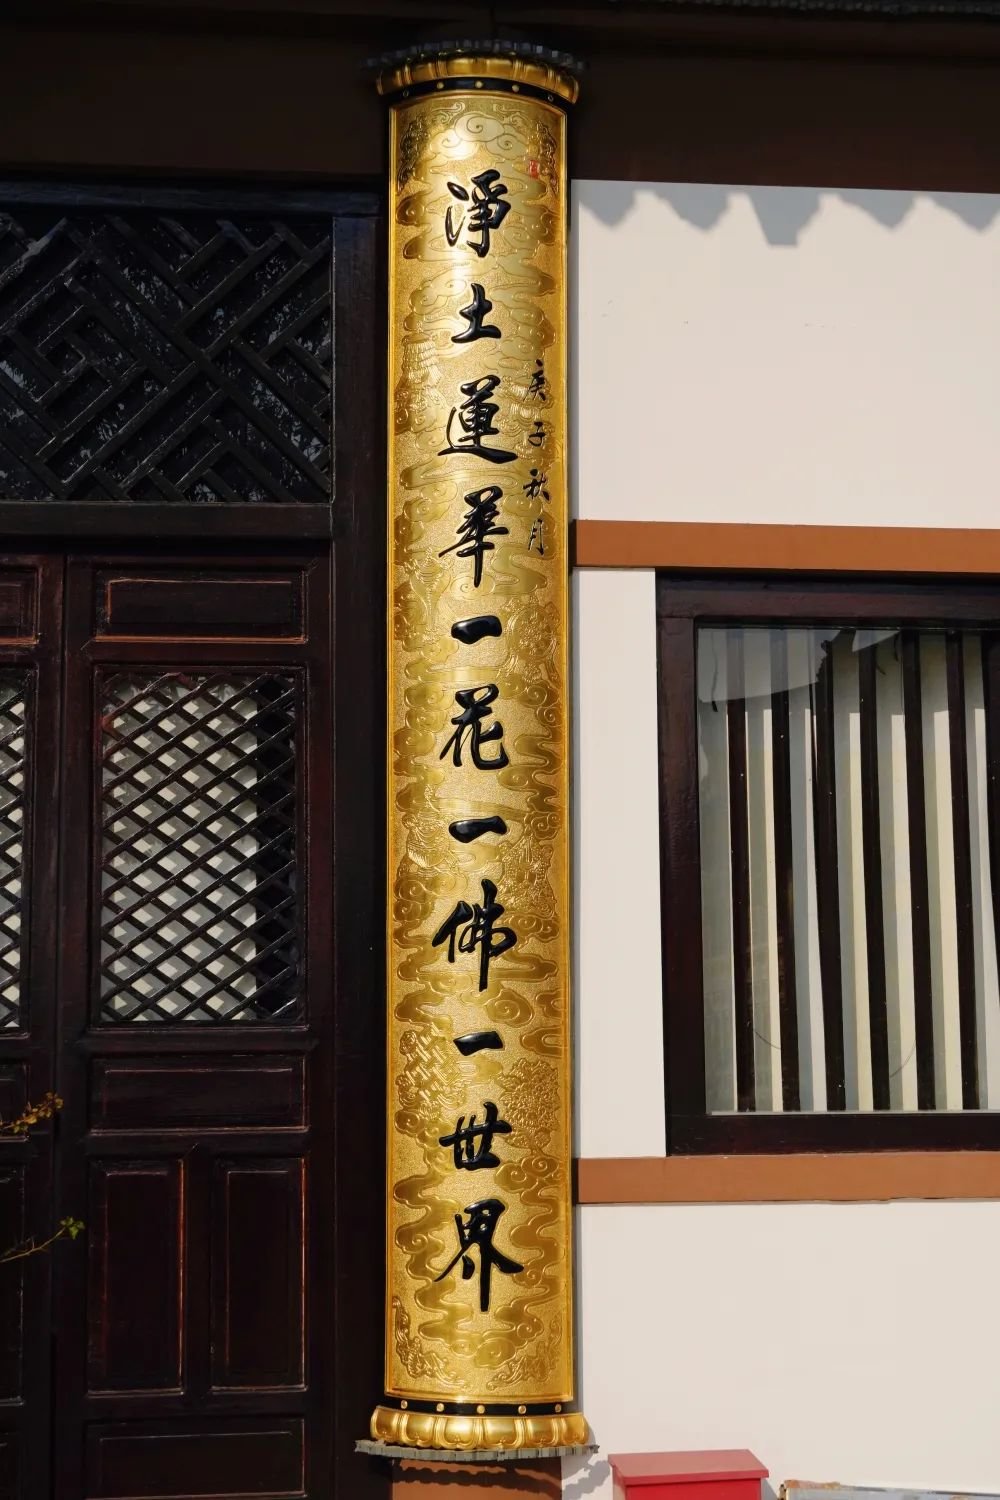 庚子秋月
淨土蓮華一花一佛一世界